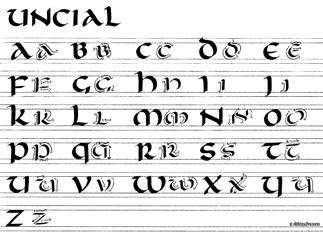 UNCIAL
A a B B C C D D E E
F F G G H h I I J J
K K L L M M N N O O
P P Q q R R S S T T
U U V V W W X X Y Y
Z Z